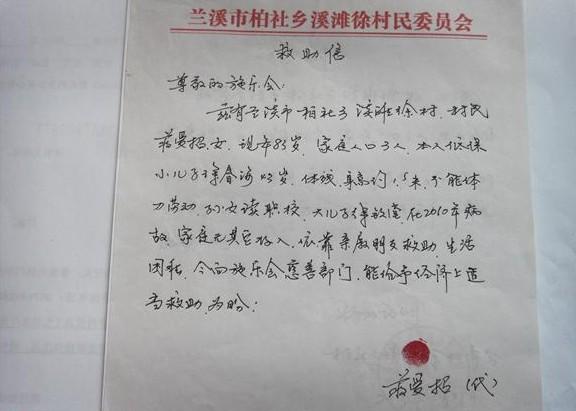 兰溪市柏社乡溪滩徐村民委员会
救助信
尊敬的施乐会:
兹有兰溪市柏社乡溪滩徐村,村民
爱招,女,现年83岁,家庭人口3人,本人低保
小儿子徐春海43岁,体残,身高约1.5米,不能体
力劳动,孙女读职校,大儿子徐敏 ,在2010年病
故,家庭无其它收入,依靠亲戚朋友救助,生活
困难,今向施乐会慈善部门,能给予经济上适
当救助,为盼:
爱招(代)